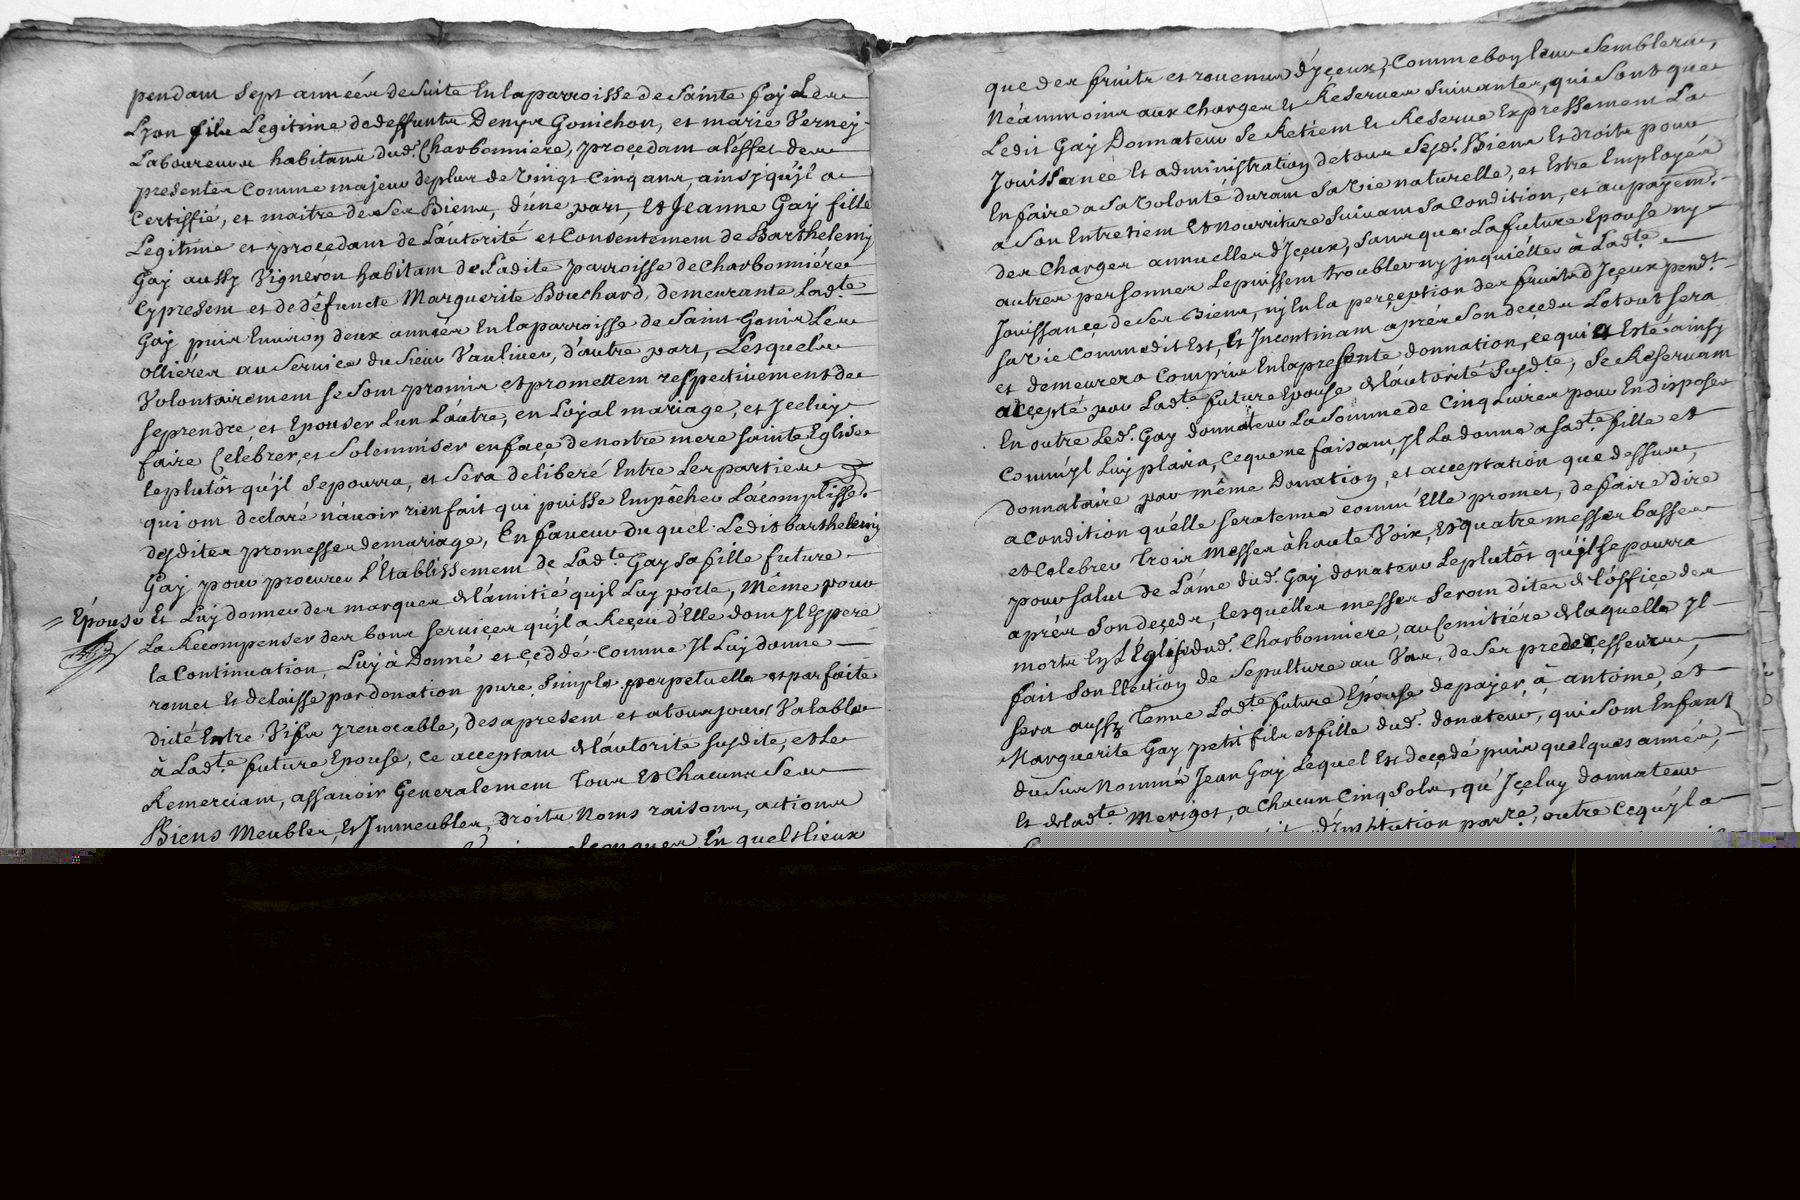 pendant sept années de suite En la parroisse de Sainte foy Les
Lyon fils Legitime de deffunts Denys Gonichon, et marie Verney
Laboureur habitans dud. Charbonniere, proçedant a l'effet des
presentes comme majeur de plus de Vingt Cinq ans, ainsy qu'yl a
Certiffié, et maitre de Ses Biens, d'une part, Et Jeanne Gay fille
Legitime et proçedant de L'autorité et Consentement de Barthelemy
Gay aussy Vigneron habitant de Ladite parroisse de Charbonniére
Cypresent et de défuncte Marguerite Bouchard, demeurante Lad.te
Gay puis Environ deux années En la parroisse de Saint Genis Les
ollières au Service du Sieur Vaulivier, d'autre part, Lesquels
Volontairement se Sont promis et promettent respectivement de
se prendre, et Epouser L'un L'autre, en Loyal mariage, et Jceluy
faire Célébrer, et Solemniser en façe de nostre mere Sainte Eglise
le plutôt qu'jl Se pourra, et Sera deliberé Entre Les parties
qui ont declaré n'avoir rien fait qui puisse Empêcher L'acomplisse.
desdites promesses de mariage, En faveur du quel Ledit barthelemy
Gay pour procurer L'Etablissement de Lad.te Gay Sa fille future
= Épouse Et Luy donner des marques de l'amitié qu'jl Luy porte, Même pour
La Recompenser des bons Serviçes qu'jl a Reçeu d'Elle dont Jl Espere
la Continuation, Luy à Donné et çeddé comme Jl Luy donne
remet Et delaisse par donation pure, Simple, perpetuelle et parfaite
dicté Entre Vifs jrrevocable, des apresent et a toujours Valable
à Lad.te future Epouse, ce acceptant de l'autorité Susdite, et Le
Remerciant, assavoir Generalement Tous Et Chacuns Ses
Biens Meubles, Et Jmmeubles, Droits Noms raisons, actions
En quels Lieux
que des fruits et revenus d'Jçeux, Comme bon leur Semblera,
Néammoins aux Charges Et Reserves Suivantes, qui Sont que
Ledit Gay Donnateur Se Retient Et Reserve Expressement La
Jouissançe Et administration de tous Sesd. Biens Et droits pour
En faire a Sa Volonté durant Sa Vie naturelle, et Estre Employés
a Son Entretient Et Nourriture Suivant Sa Condition, et au payem.
des Charges annuelles d'Jçeux, Sans que La future Epouse ny
autres personnes Le puissent troubler ny jnquiétter à Lad.te
Jouissançe de Ses Biens, ny En la perçeption des fruits d'Jçeux pend.t
Sa Vie Comme dit Est, Et Jncontinant aprés Son deçeds Le tout Sera
et demeurera Compris En la presente donnation, ce qui a Esté ainsy
acçepté par Lad.te future Epouse de l'autorité Susd.te, Se Reservant
En outre Led. Gay donnateur La Somme de Cinq Livres pour En disposer
Comm'yl Luy plaira, Ce que ne faisant, Jl La donne a Sad.te fille et
donnataire par même Donation, et acceptation que dessus,
a condition qu'elle Sera tenue comm'Elle promet, de faire dire
et Celebrer Trois Messes à haute Voix, Et quatre messes basses
pour Salut de L'âme dud. Gay donateur Le plutôt qu'jl Se pourra
aprés Son deçeds, lesquelles messes Seront dites de l'office des
morts En L'Eglise dud. Charbonniere, au Cemitiére de laquelle Jl
fait Son Election de Sepulture au Vas, de Ses predecesseurs,
Sera aussy Tenue Lad.te future Epouse de payer, à antoine, et
Marguerite Gay petit fils et fille dud. donateur, qui Sont Enfant
du Sus Nommé Jean Gay Lequel Est deçedé puis quelques année,
Et de lad.te Merigot, a Chacun Cinq Sols, qu'Jçeluy donnateur
d'Jnstitution par.re, outre Ce qu'yl a